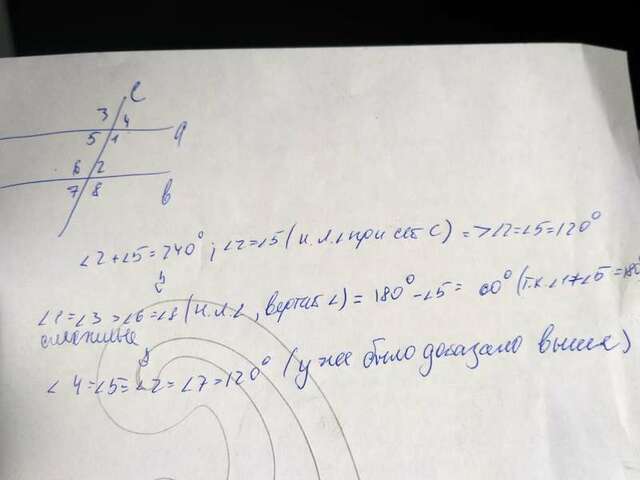 c
3 4
5 1 a
6 2
7 8 в
∠2+∠5=240°; ∠2=∠5 (н.л.∠ при сек c) => ∠2=∠5=120°
∠1=∠3=∠6=∠8 (н.л.∠, вертик ∠) = 180° - ∠5 = 60° (т.к. ∠1+∠5=180°
смежные
∠4=∠5=∠2=∠7=120° (уже было доказано выше)